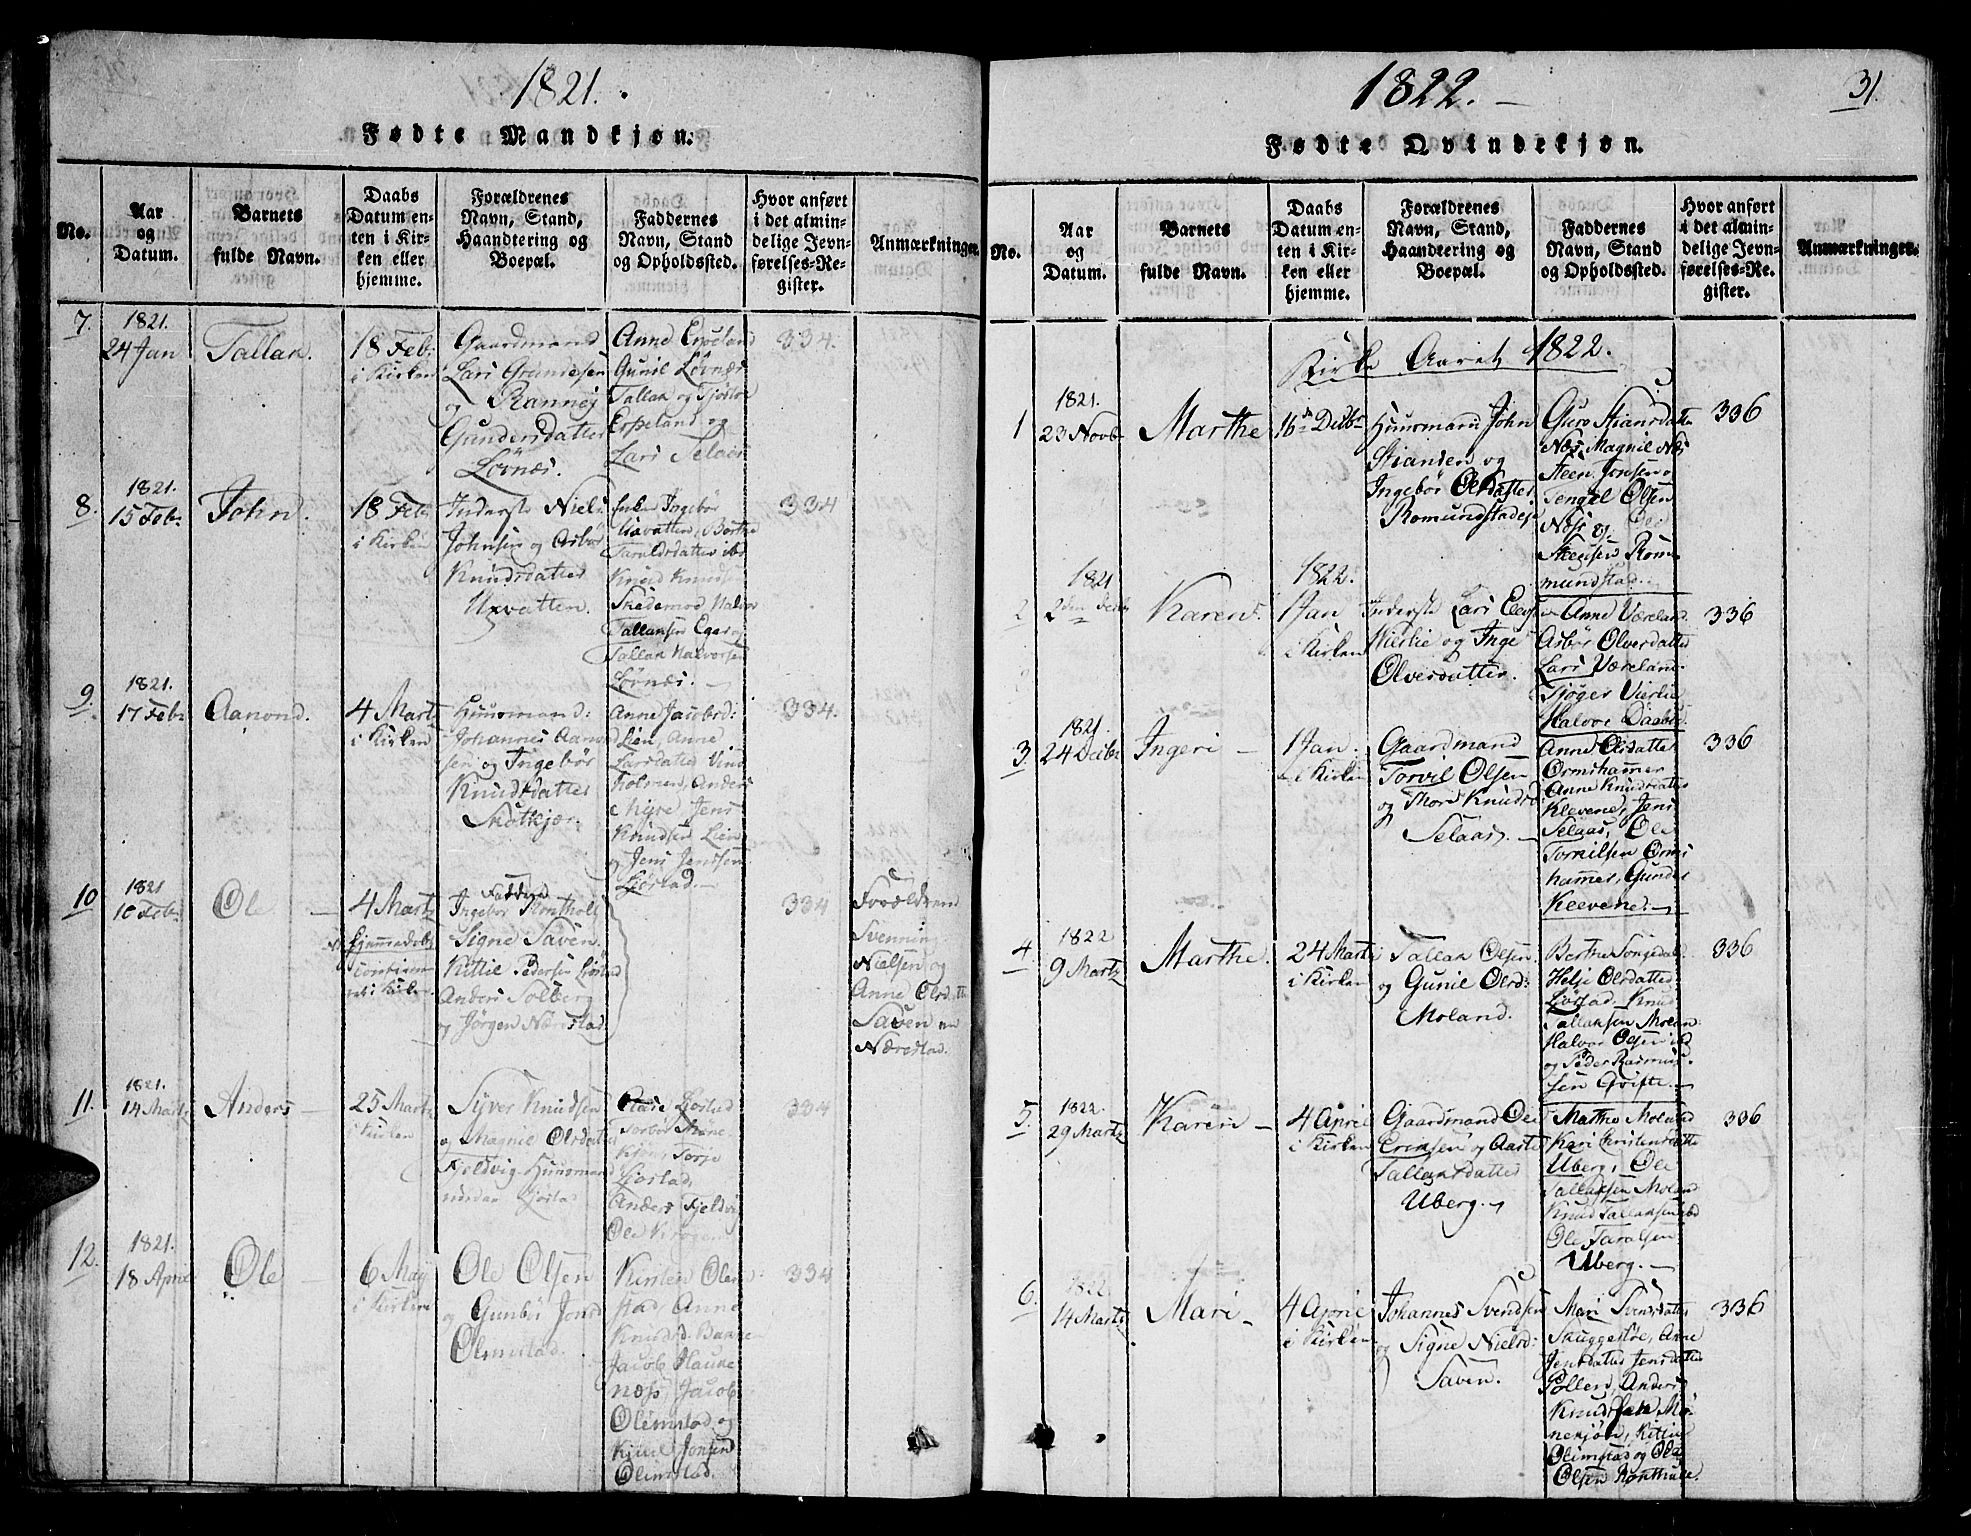 1821.
Fødte Mandkjøn.
No.
Aar
og
Datum.
Barnets
fulde Navn.
Daabs
Datum en-
ten i Kir-
ken eller
hjemme.
Forældrenes
Navn, Stand,
Haandtering og
Boepæl.
Faddernes
Navn, Stand
og Opholdssted.
Hvor anført
i det almin-
delige Jevn-
førelses-Re-
gister.
Anmærkninger.
7.
1821.
24 Jan
Tallak.
18 Feb:
i Kirken
Gaardmand
Lars
og
Gundersdatter
Løvnæs.
Anne
Gunil Løvnæs
Tallak og
Espeland og
Lars Selaas
334.
8.
1821.
15 Feb:
John.
18 Feb
i Kirken
Inderste Niels
Johnsen og Asbør
Knudsdatter
Uxvatten.
Enke Ingebør
Uxvatten, Berthe
Taraldsdatter ibd
Knud Knudsen
Skedemod, Halvor
Tallaksen Egas og
Tallak Halvorsen
Løvnæs.
334
9.
1821.
17 Feb:
Aanond.
4 Martz
i Kirken
Huusmand:
Johannes Aanond
sen og Ingebør
Knudsdatter
Skotkjær.
Anne Jacobsd:
Lien, Anne
Larsdatter Vind
holmen, Anders
Myre, Jens
Knudsen Lien
og Jens Jensen
Ljøstad.
334.
10
1821
10 Feb:
Ole
4 Martz
hjemmedøbt
i Kirken.
Faddere
Ingebør Røntholt
Signe Saven.
Kittil Pedersen Ljøstad
Anders Solberg
og Jørgen Nærestad.
334
Forældrene
Svenning
Nielsen og
Anne Olsdatter
Saven
Nærestad.
11.
1821.
14 Martz
Anders
25 Martz
i Kirken
Syver Knudsen
og Magnil Olsdatter
Fjeldvig. Huusmand
Ljøstad
Aase Ljøstad
Torbør Møne-
kjøn, Torje
Ljøstad,
Anders Fjeldvig
Ole Krogen
334
12.
1821.
18 April
Ole
6 May
i Kirken
Ole Olsen
og Gunbør Jonsd
Olimstad.
Kirsten Olim
stad, Anne
Knudsd. Bakke
Jacob Hauke
næss, Jacob
Olimstad og
Jonsen
Olimstad.
334
1822.
31.
Fødte Qvindekjøn.
No.
Aar
og
Datum.
Barnets
fulde Navn.
Daabs
Datum en-
ten i Kir-
ken eller
hjemme.
Forældrenes
Navn, Stand,
Haandtering og
Boepæl.
Faddernes
Navn, Stand
og Opholdssted.
Hvor anført
i det almin-
delige Jevn-
førelses-Re-
gister.
Anmærkninger.
Kirke Aaret 1822.
1
1821.
23 Novbr
Marthe
16 Decbr
Huusmand John
Stiansen og
Ingebør Olsdatter
Romundstad
Guro Stiansdatter
Næs, Magnil Næs
Steen Jonsen
Tengel Olsen
Næs og Ole
Steensen Rom-
mundstad.
336
2
1821
2den Decbr
Karen.
1822.
1 Jan
i Kirken
Inderste Lars
Vierlie og Inge
Olversdatter.
Anne Væreland
Asbør Olversdatter
Lars Væreland
Tjøger Vierlie
Halvor Daabel.
336
3.
1821.
24 Decbr
Ingeri
1 Jan.
i Kirken
Gaardmand
Torvil Olsen
og Thore Knudsd
Selaas.
Anne Olsdatter
Ormshammer
Anne Knudsdatter
Klevene, Jens
Selaas, Ole
Torkilsen Orms
hammer, Gunder
Kleevene.
336
4.
1822
9 Martz
Marthe.
24 Martz
i Kirken
Tallak Olsen
og Gunil Olsd:
Moland.
Berthe Songedal
Helje Olsdatter
Ljøstad. Knud
Tallaksen Molan:
Halvor Olsen ibd
og Peder Rasmus
sen Qvifte.
336
5.
1822.
29 Martz
Karen
4 April
i Kirken
Gaardmand Ole
Eriksen og Aaste
Tallaksdatter
Uberg.
Marthe Moland
Kari Christensdatter
Uberg, Ole
Tallaksen Moland
Knud Tallaksen ibd
Ole Taralsen
Uberg.
336
6.
1822.
14 Martz
Mari
4 April
i Kirken
Johannes Svendsen
og Signe Nielsd:
Saven.
Mari Svensdatter
Skuggestøe, Anne
Jensdatter Jensdatter
Pollen, Anders
Knudsen Mø-
nekjøn, Kittil
Olimstad og Ole
Olsen Rønthule.
336